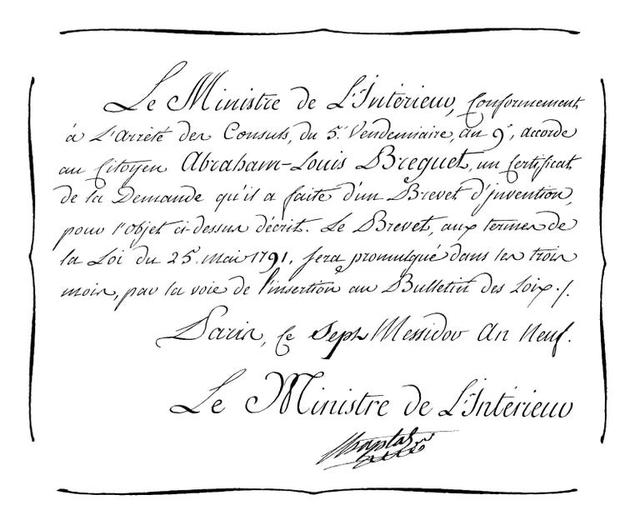 Le Ministre de L'Intérieur, Conformement
à L'Arrêté des Consuls, du 5.e Vendemiaire, an 9.e, accorde
au Citoyen Abraham-Louis Breguet, un Certificat
de la Demande qu'il a faite d'un Brevet d'invention,
pour l'objet ci-dessus décrit. Le Brevet, aux termes de
la Loi du 25. mai 1791, sera promulgué dans les trois
mois, par la voie de l'insertion au Bulletin des Loix./.
Paris, Ce Sept Messidor An Neuf.
Le Ministre de L'Intérieur
Chaptal